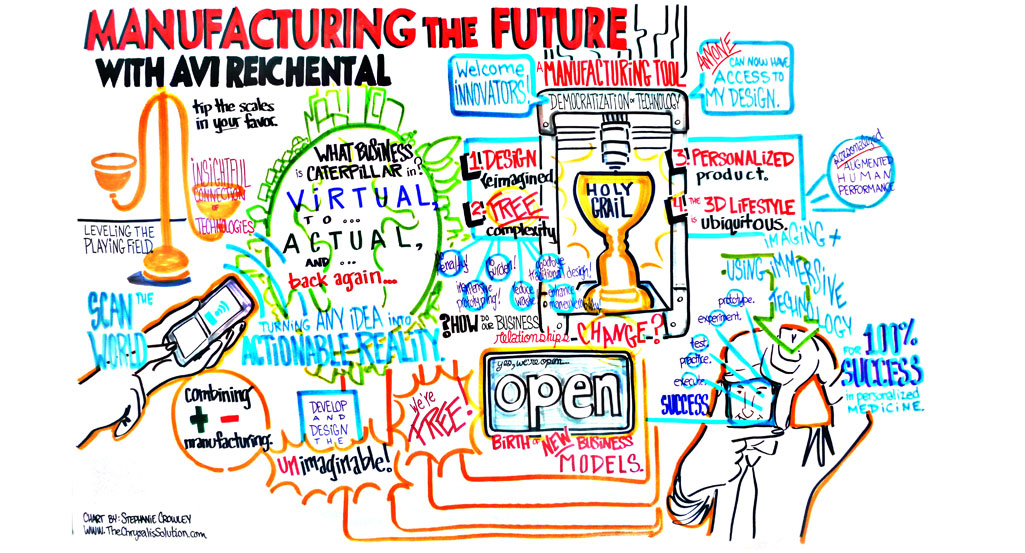 MANUFACTURING THE FUTURE
WITH AVI REICHENTAL
tip the scales
in your favor.
INSIGHTFUL
CONNECTION
OF
TECHNOLOGIES
LEVELING THE
PLAYING FIELD.
WHAT BUSINESS
is CATERPILLAR in?
VIRTUAL,
TO...
ACTUAL,
AND...
back again...
Welcome
INNOVATORS!
A MANUFACTURING TOOL
DEMOCRATIZATION OF TECHNOLOGY
ANYONE
CAN NOW HAVE
ACCESS TO
MY DESIGN.
1. DESIGN
reimagined.
2. FREE
complexity
HOLY
GRAIL
3. PERSONALIZED
product.
4. THE 3D LIFESTYLE
is ubiquitous.
AUGMENTED
HUMAN
PERFORMANCE
no penalty!
no burden!
traditional design!
inexpensive
prototyping!
reduce
waste
enhance
? HOW DO OUR BUSINESS
relationships... CHANGE?
SCAN THE
WORLD
TURNING ANY IDEA INTO
ACTIONABLE REALITY.
IMAGING +
USING IMMERSIVE
TECHNOLOGY
FOR 100%
SUCCESS
in personalized
MEDICINE.
prototype.
experiment.
test
practice.
execute
SUCCESS
combining
+ -
manufacturing.
DEVELOP
AND
DESIGN
THE
unimaginable!
We're
FREE!
yes, we're open...
open
BIRTH OF NEW BUSINESS
MODELS.
CHART BY: STEPHANIE CROWLEY
WWW.TheChrysalisSolution.com